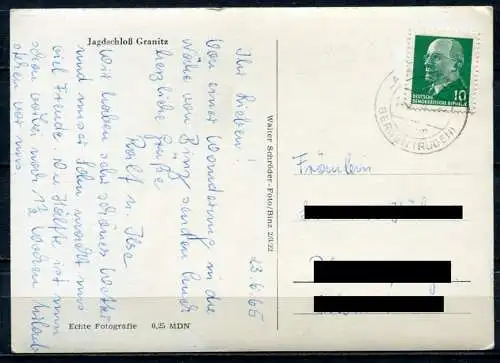 Jagdschloß Granitz
23.6.65
Ihr Lieben!
Von einer Wanderung in die
Nähe von Binz senden Euch
herzliche Grüße
Rolf u. Ilse
Wir haben sehr schönes Wetter
und unser Sohn macht uns
viel Freude. Die Hälfte ist nun
schon vorbei, noch 1½ Wochen Urlaub
stehen vor uns
Echte Fotografie 0,25 MDN
Walter Schröder-Foto/Binz
DEUTSCHE
DEMOKRATISCHE REPUBLIK
10
BERGEN (RÜGEN)
Fräulein